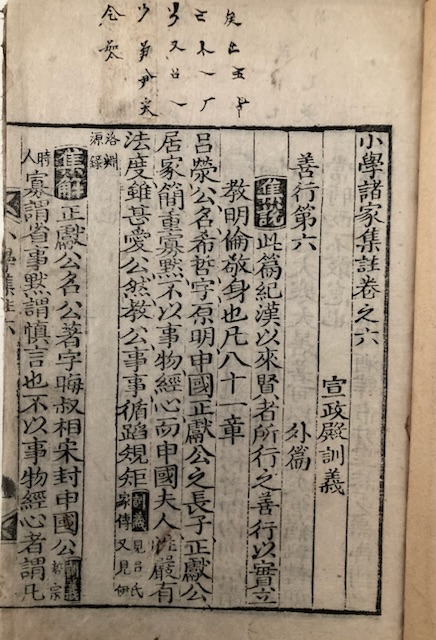 小學諸家集註卷之六
宣政殿訓義
善行第六 外篇
集說 此篇紀漢以來賢者所行之善行以實立
教明倫敬身也凡八十一章
呂滎公名希哲字原明申國正獻公之長子正獻公
居家簡重寡默不以事物經心而申國夫人性嚴有
法度雖甚愛公然教公事事循蹈規矩 訓義 見呂氏家傳又見伊
洛淵源錄
集解 正獻公名公著字晦叔相宋封申國公 訓義 哲宗
時人 寡謂省事默謂慎言也不以事物經心者謂凡
學集註 六